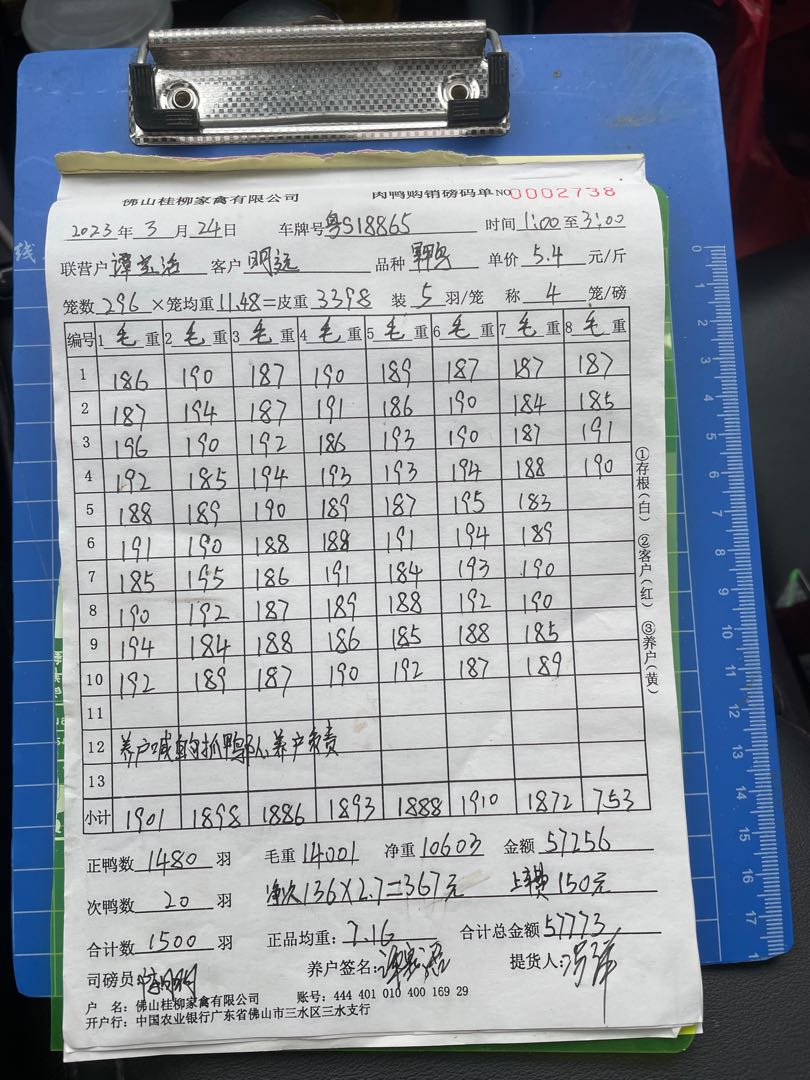 佛山桂柳家禽有限公司 肉鸭购销磅码单 NO 0002738
2023年3月24日 车牌号粤S18865 时间1:00至3:00
联营户 客户明记 品种 单价5.4元/斤
笼数296×笼均重11.48=皮重3398 装5羽/笼 称4笼/磅
编号 1毛重 2毛重 3毛重 4毛重 5毛重 6毛重 7毛重 8毛重
1 186 190 187 190 189 187 187 187
2 187 194 187 191 186 190 184 185
3 196 190 192 186 193 190 187 191
4 192 185 194 193 193 194 188 190
5 188 189 190 189 187 195 183
6 191 190 188 188 191 194 189
7 185 195 186 191 184 193 190
8 190 192 187 189 188 192 190
9 194 184 188 186 185 188 185
10 192 189 187 190 192 187 189
11
12 养户喊的抓鸭队,养户负责
13
小计 1901 1898 1886 1893 1888 1910 1872 753
①存根(白) ②客户(红) ③养户(黄)
正鸭数1480羽 毛重14001 净重10603 金额57256
次鸭数20羽 净次136×2.7=367元 上车费150元
合计数1500羽 正品均重:7.16 合计总金额57773
司磅员: 养户签名: 提货人:
户 名:佛山桂柳家禽有限公司 账号:444 401 010 400 169 29
开户行:中国农业银行广东省佛山市三水区三水支行
线
0 1 2 3 4 5 6 7 8 9 10 11 12 13 14 15 16 17